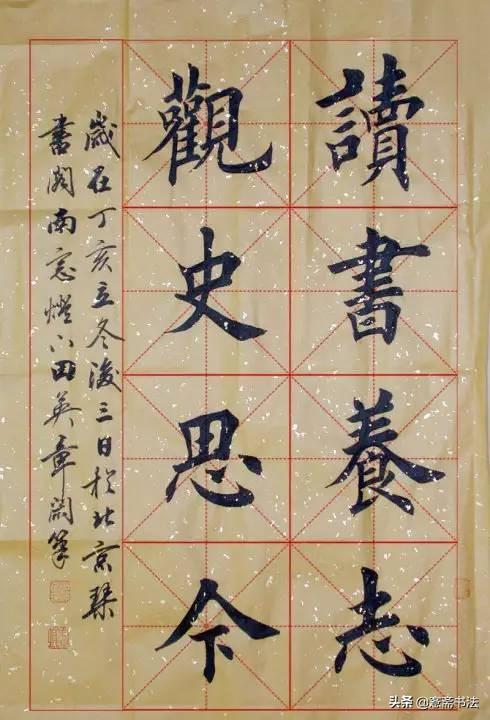 讀書養志
觀史思今
歲在丁亥立冬後三日於北京琴
書閣南窓燈下田英章開筆
头条@意斋书法